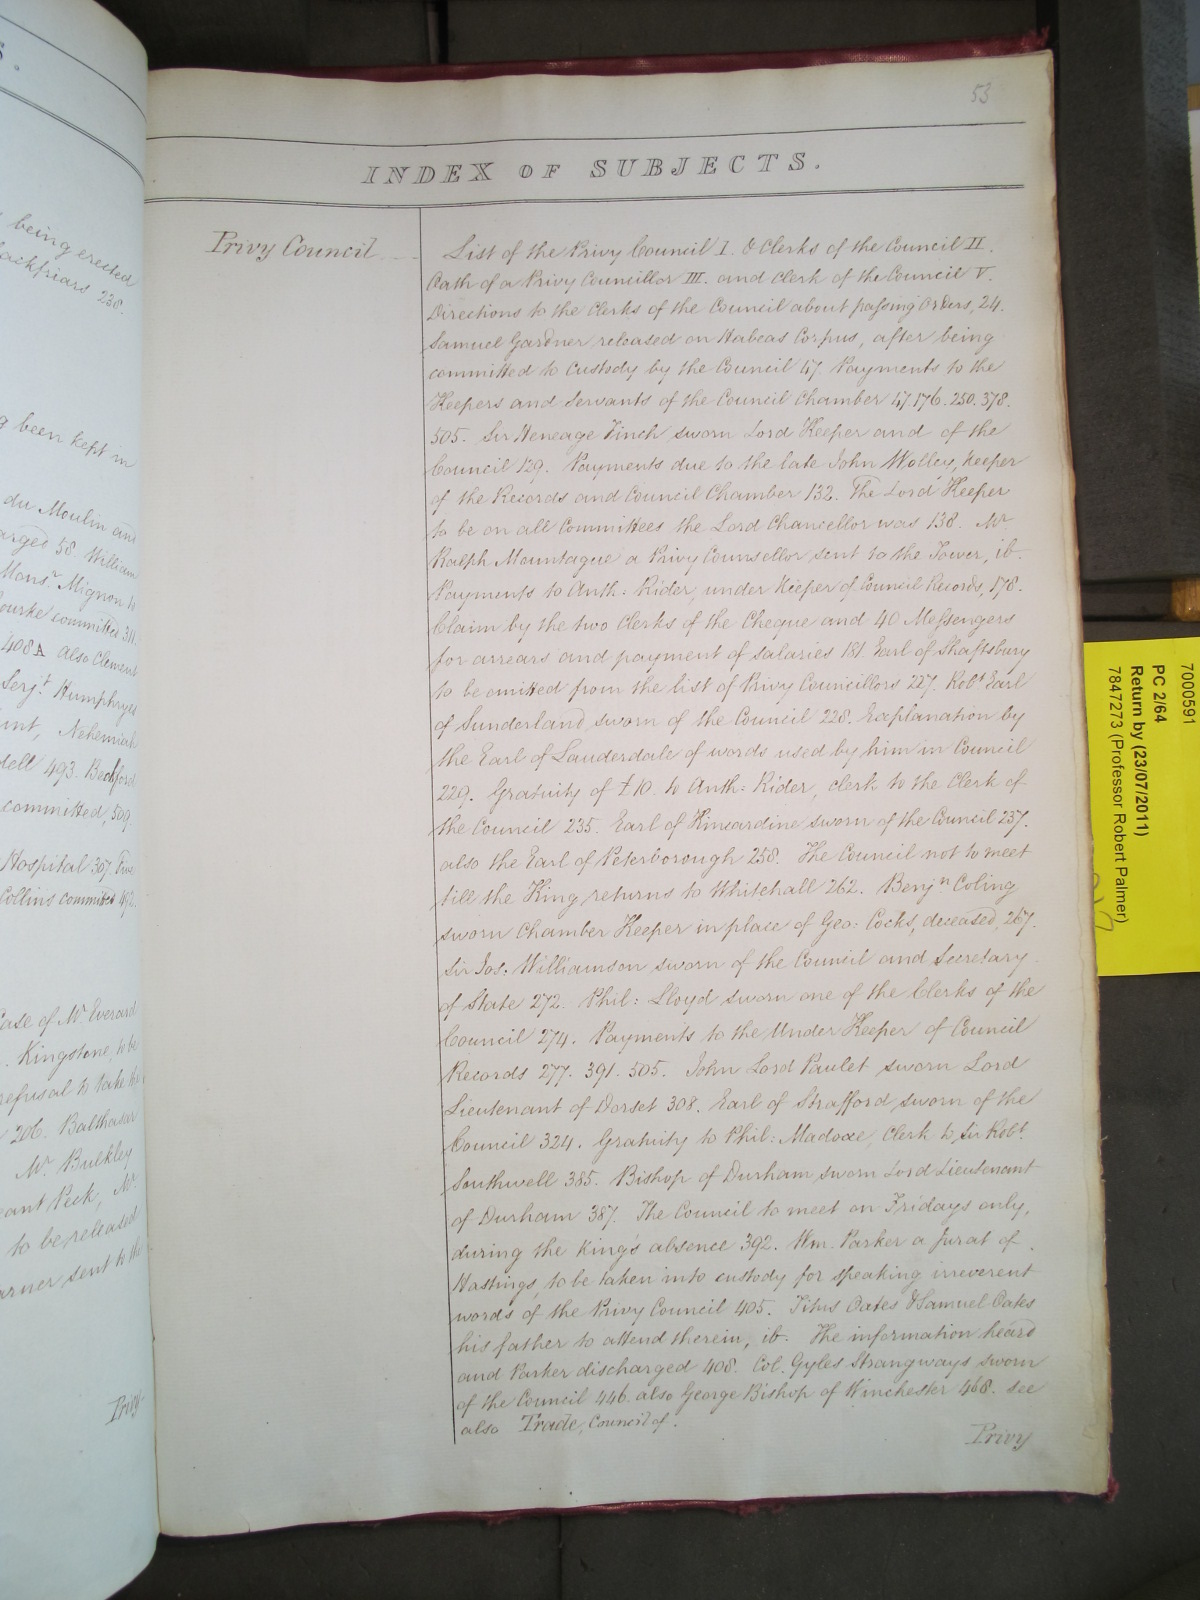 S.
being erected
Blackfriars 238.
been kept in
du Moulin and
58 William
Mons.r Mignon to
committed 311.
408A also Clement
Serj.t Humphryes
Nehemiah
493. Beckford
committed, 509.
Hospital 307. Five
Collins committed 492.
Case of Mr Everard
Kingstone, to be
refusal to take the
206. Balthasar
Mr. Bulkley
Peck, Mr.
to be released
sent to the
Privy
53
INDEX OF SUBJECTS.
Privy Council
List of the Privy Council I. & Clerks of the Council II.
Oath of a Privy Councillor III. and Clerk of the Council V.
Directions to the Clerks of the Council about passing Orders, 24.
Samuel Gardner released on Habeas Corpus, after being
committed to custody by the Council 47. Payments to the
Keepers and Servants of the Council Chamber 47. 176. 250. 378.
505. Sir Heneage Finch sworn Lord Keeper and of the
Council 129. Payments due to the late John Wolley, keeper
of the Records and Council Chamber 132. The Lord Keeper
to be on all Committees the Lord Chancellor was 138. Mr.
Ralph Mountague a Privy Counsellor sent to the Tower, ib.
Payments to Anth: Rider, under Keeper of Council Records, 178.
Claim by the two Clerks of the Cheque and 40 Messengers
for arrears and payment of salaries 181. Earl of Shaftsbury
to be omitted from the list of Privy Councillors 227. Robt Earl
of Sunderland sworn of the Council 228. Explanation by
the Earl of Lauderdale of words used by him in Council
229. Gratuity of £10. to Anth: Rider, clerk to the Clerk of
the Council 235. Earl of Kincardine sworn of the Council 237.
also the Earl of Peterborough 258. The Council not to meet
till the King returns to Whitehall 262. Benj.n Coling
sworn Chamber Keeper in place of Geo: Cocks, deceased, 267.
Sir Jos. Williamson sworn of the Council and Secretary
of State 272. Phil: Lloyd sworn one of the Clerks of the
Council 274. Payments to the Under Keeper of Council
Records 277. 391. 505. John Lord Paulet sworn Lord
Lieutenant of Dorset 308. Earl of Strafford sworn of the
Council 324. Gratuity to Phil: Madoxe, Clerk to Sir Robt.
Southwell 385. Bishop of Durham sworn Lord Lieutenant
of Durham 387. The Council to meet on Fridays only,
during the King's absence 392. Wm. Parker a Jurat of
Hastings, to be taken into custody for speaking irreverent
words of the Privy Council 405. Titus Oates & Samuel Oates
his father to attend therein, ib. The information heard
and Parker discharged 408. Col. Gyles Strangways sworn
of the Council 446. also George Bishop of Winchester 468. see
also Trade, Council of.
Privy
7000591
PC 2/64
Return by (23/07/2011)
7847273 (Professor Robert Palmer)